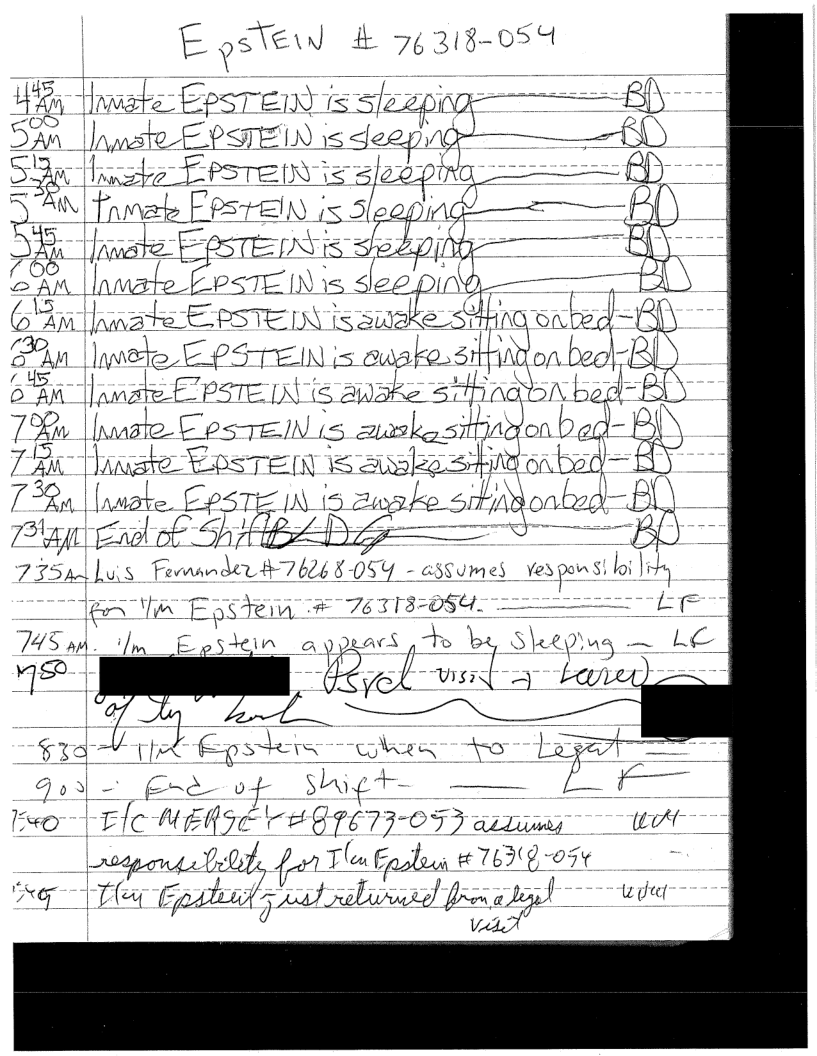 EpSTEIN # 76318-054
4 45 AM Inmate EPSTEIN is sleeping BD
5 00 AM Inmate EPSTEIN is sleeping BD
5 15 AM Inmate EPSTEIN is sleeping BD
5 30 AM Inmate EPSTEIN is sleeping BD
5 45 AM Inmate EPSTEIN is sleeping BD
6 00 AM Inmate EPSTEIN is sleeping BD
6 15 AM Inmate EPSTEIN is awake sitting on bed - BD
6 30 AM Inmate EPSTEIN is awake sitting on bed - BD
6 45 AM Inmate EPSTEIN is awake sitting on bed - BD
7 00 AM Inmate EPSTEIN is awake sitting on bed - BD
7 15 AM Inmate EPSTEIN is awake sitting on bed - BD
7 30 AM Inmate EPSTEIN is awake sitting on bed - BD
7 31 AM End of Shift BD
735 AM Luis Fernandez # 76268-054 - assumes responsibility
for I/m Epstein # 76318-054. LF
745 AM. I/m Epstein appears to be sleeping - LF
750 Psych visit
830 - I/m Epstein when to Legal
900 - End of shift - LF
I/C MERSEY # 89673-053 assumes
responsibility for I/m Epstein # 76318-054
I/m Epstein just returned from a legal
visit